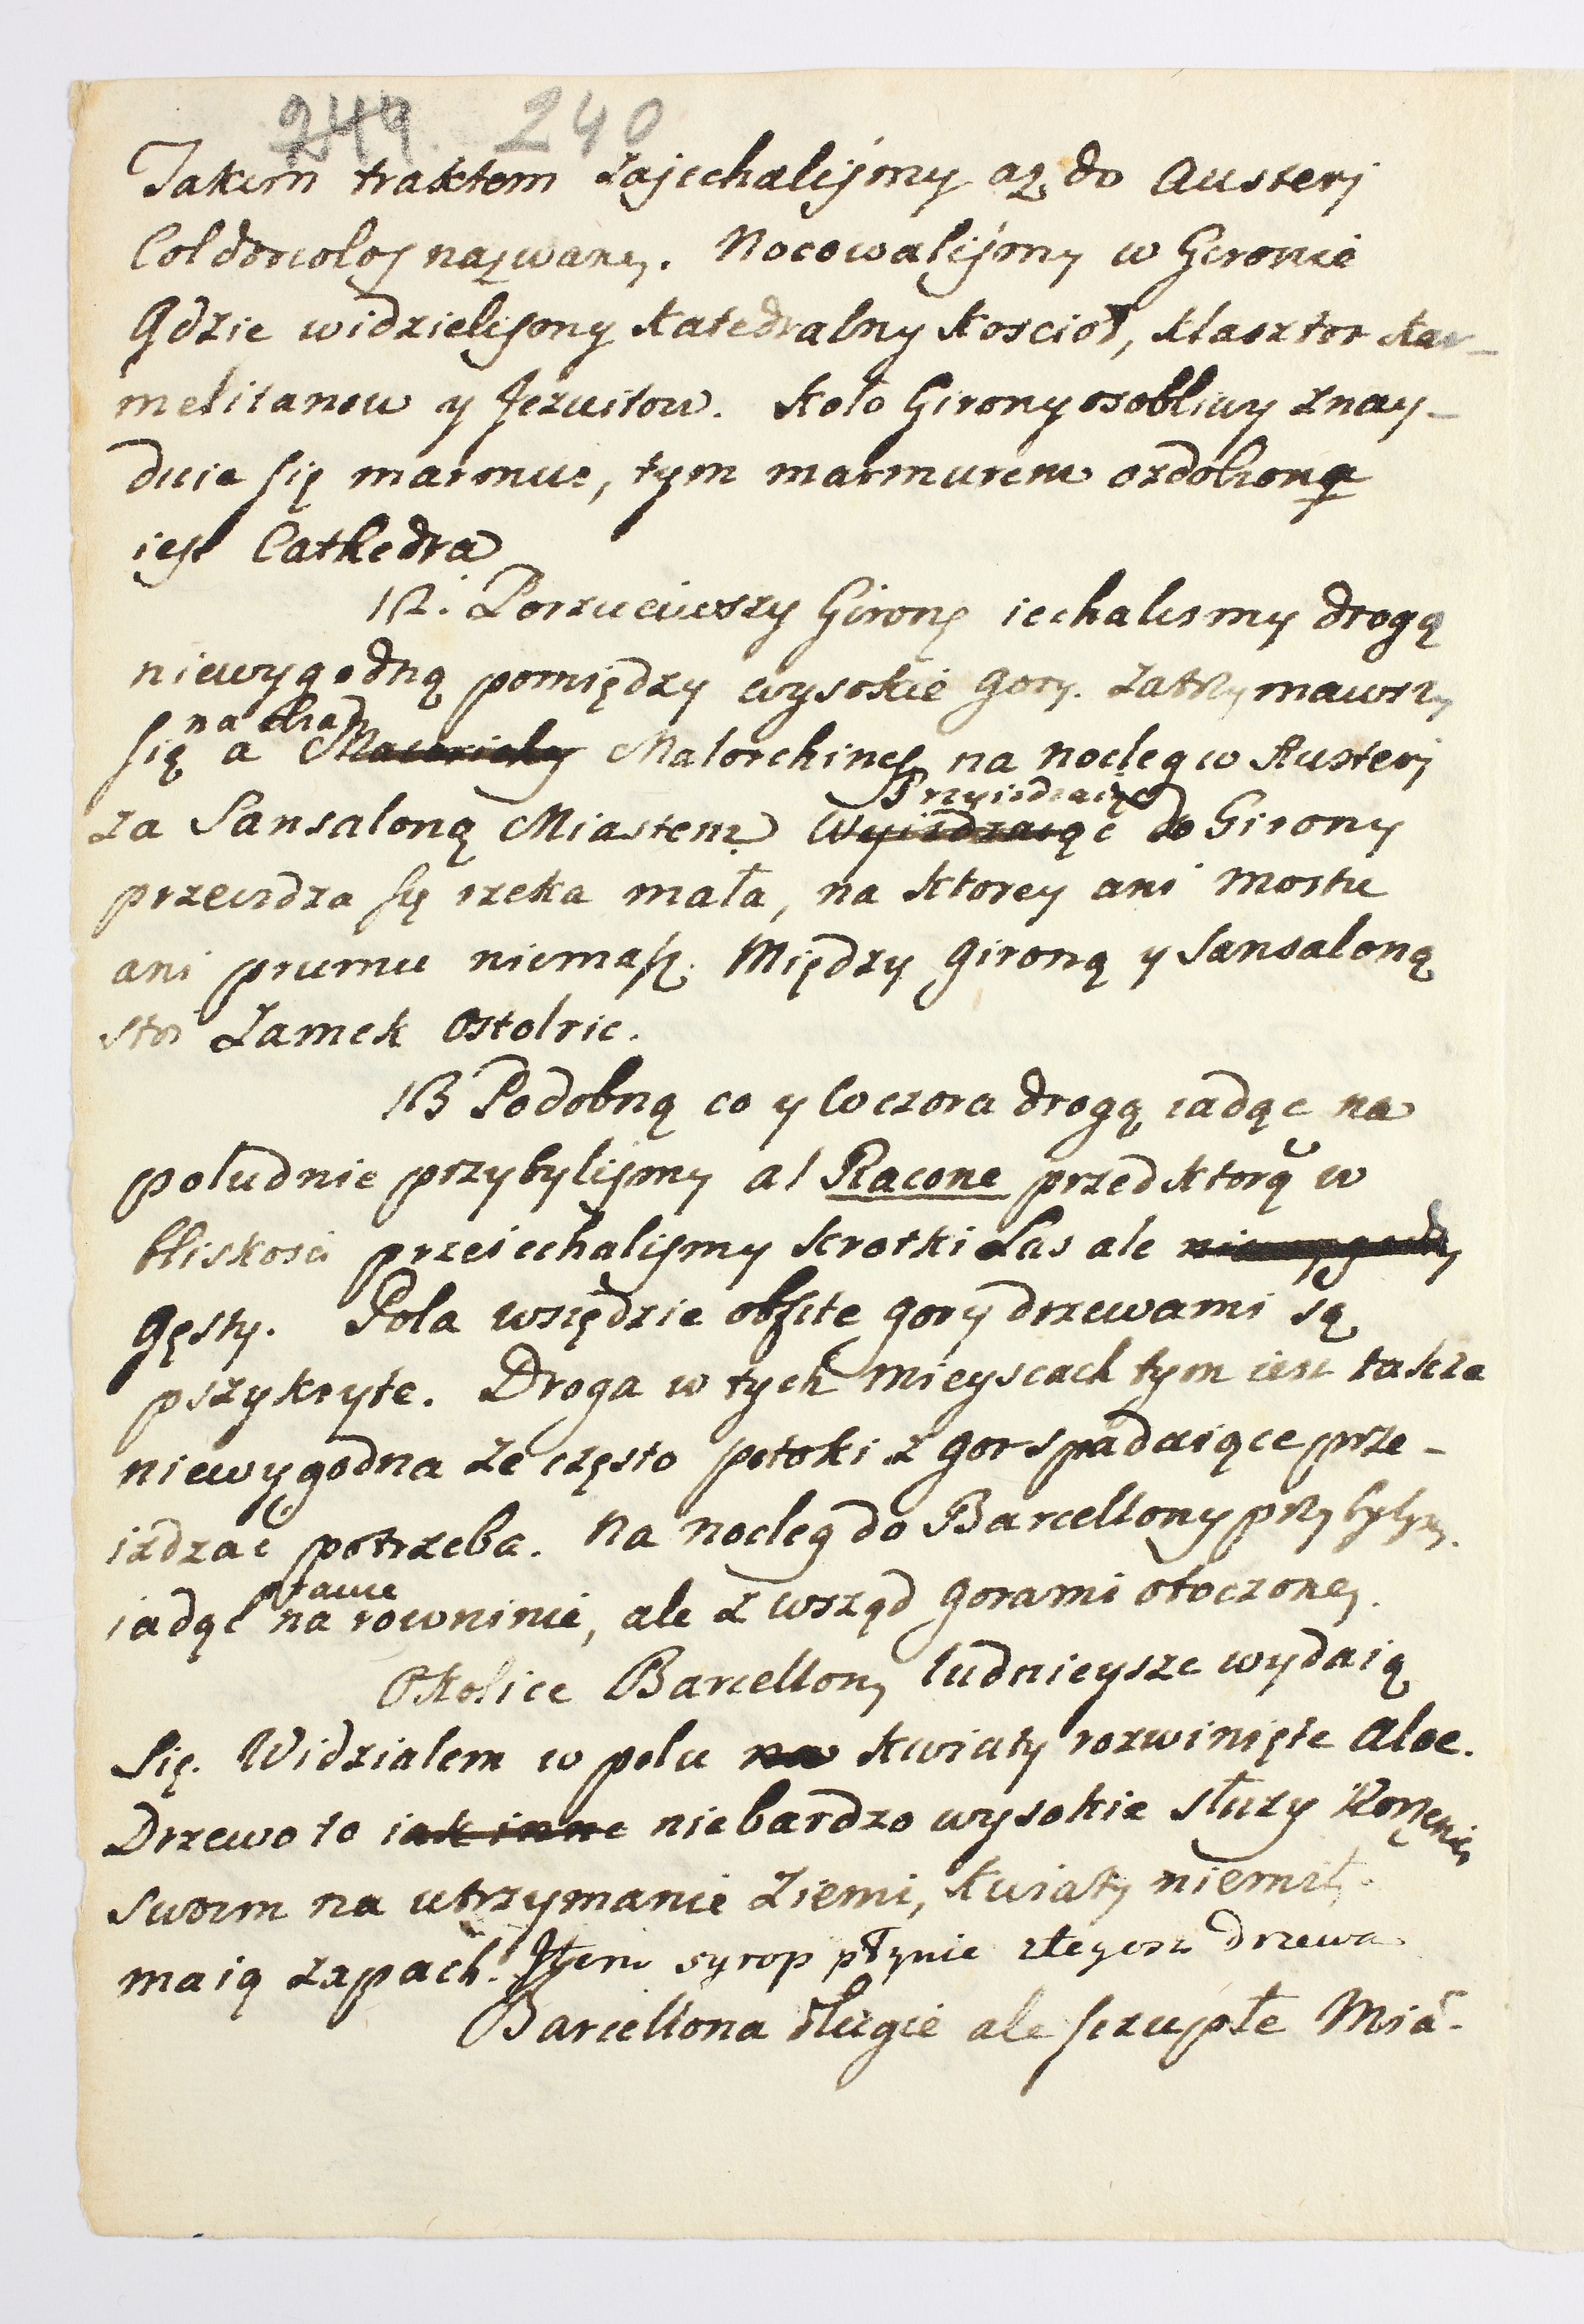 244. 240
Takim traktem zajechaliśmy aż do Austerj
nazwaney. Nocowaliśmy w Geronie
Gdzie widzieliśmy Katedralny Kościoł, Klasztor Kar-
melitanow y Jezuitow. Koło Girony osobliwy znay-
duie się marmur, tym marmurem ozdobiona
iest Cathedra
12. Porzuciwszy Gironę iechalismy drogą
niewygodną pomiędzy wysokie gory. Zatrzymawszy
na obiad
się a Malorchines na nocleg w Austerj
Przyiezdzaiąc
za Sansaloną Miastem Wyiezdzaiąc do Girony
przeiezdza się rzeka mała, na ktorey ani mostu
ani prumu niemasz. Między Gironą y Sansaloną
stoi Zamek Ostolric.
13 Podobną co y Wczora drogą iadąc na
południe przybyliśmy al Racone przed ktorą w
bliskosci przeiechaliśmy krotki Las ale niewygodny
gęsty. Pola wszędzie obfite gory drzewami są
pszykryte. Droga w tych mieyscach tym iest takze
niewygodna ze często potoki z gor spadaiące prze-
izdzac potrzeba. Na nocleg do Barcellony przybylismy.
prawie
iadąc na rowninie, ale z wsząd gorami otoczoney.
Okolice Barcellony ludnieysze wydaią
Się. Widziałem w polu na kwiaty rozwinięte aloe.
Drzewo to iak inne niebardzo wysokie służy Korzeniem
swoim na utrzymanie Ziemi, kwiaty niemiły
maią zapach. Item syrop płynie ztegosz drzewa
Barcellona długie ale szczupłe Mia-